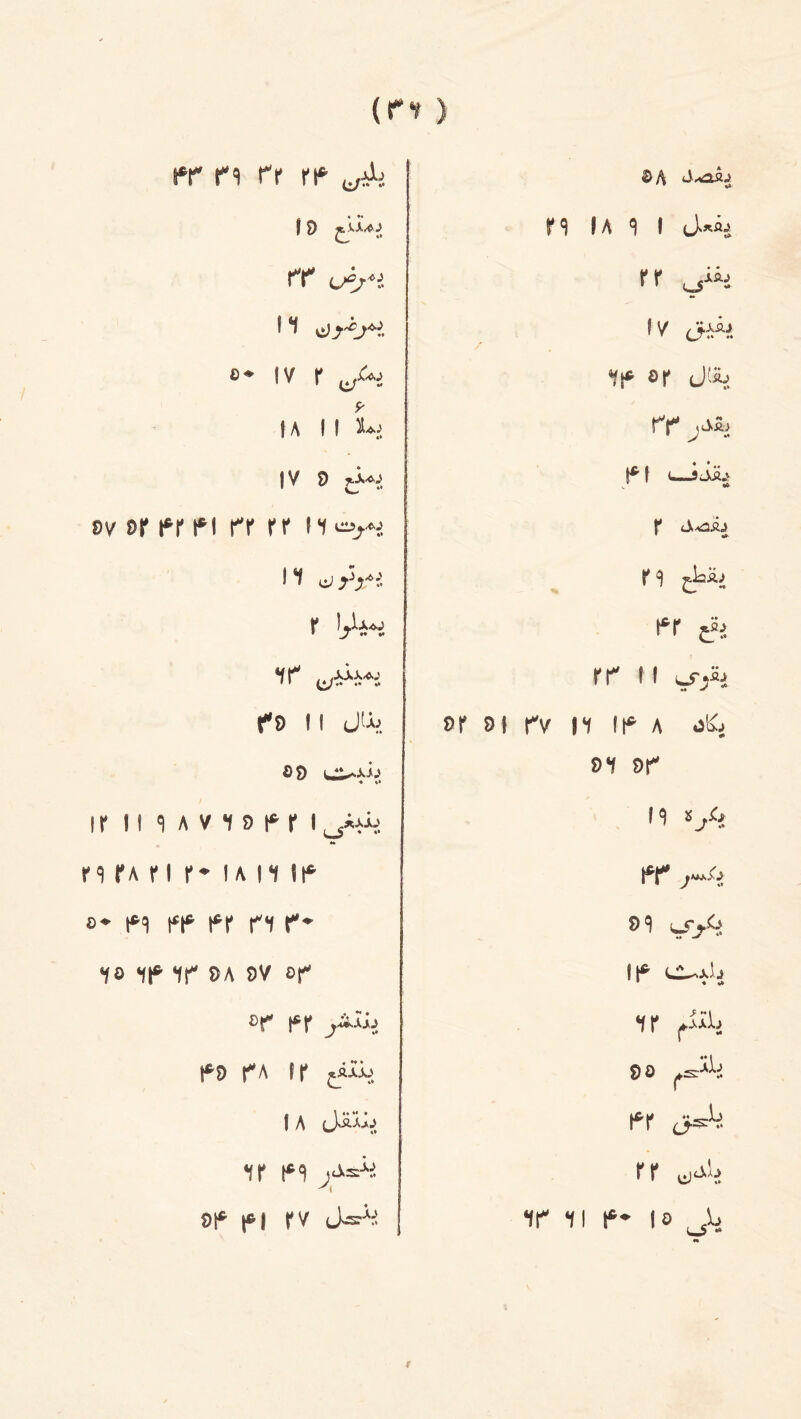 (٣٦)
يفصل ٥٨
يفعل ١ ٩ ١٨ ٢٩
يفنى ٢٢
يفيق ١٧
يقال ٥٢ ٦٤
يقدر ٣٣
يقذف ٤١
يقصد ٢
يقطع ٢٩
يقع ٤٢
يقوى ١١ ٢٣
يكاد ٨ ١٤ ١٦ ٣٧ ٥١ ٥٢
٥٣ ٥٦
يكره ١٩
يكسر ٤٣
يكوى ٥٩
يلبث ١٤
يلتئم ٦٢
يلتحم ٥٥
يلحق ٤٢
يلدن ٢٢
يلى ١٥ ٤٠ ٦١ ٦٣
يلين ٢٤ ٣٢ ٣٩ ٤٣
يمتنع ١٥
يمرض ٣٣
يمرضون ١٦
يمكن ٢ ١٧ ٥٠
يملأ ١١ ١٨
يمنع ٥ ١٧
يموت ١٦ ٢٢ ٣٢ ٤١ ٤٢ ٥٢ ٥٧
يموتون ١٦
يميلوا ٢
٦٣
ينال ١١ ٣٥
ينبت ٥٥
ينبغى ١ ٢ ٤ ٥ ٦ ٧ ٨ ٩ ١١ ١٢
١٤ ١٦ ١٨ ٢٠ ٢١ ٢٨ ٢٩
٣٠ ٣٦ ٤٢ ٤٤ ٤٩ ٥٠
٥٣ ٥٧ ٥٨ ٦٢ ٦٤ ٦٥
ينتشر ٤٢ ٥٣
ينتفع ١٢ ٣٨ ٤٥
ينتقل ١٨
ينحدر ٤٩ ٦٢
ينحل ٢٧ ٤١ ٥٤